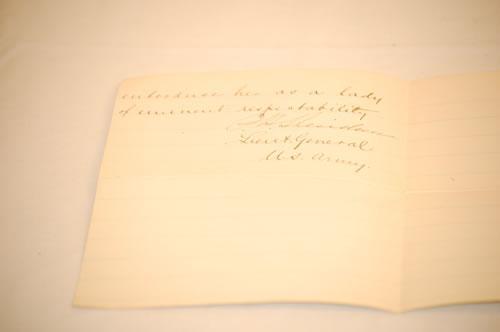 introduce her as a lady
of eminent respectability
P. H. Sheridan
Lieut. General
U.S. Army.